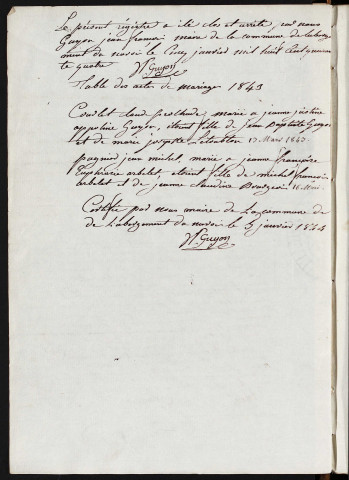 Le présent registre a été clos et arrêté, par nous
Guyon jean françois maire de la commune de laberge
ment du navois le cinq janvier mil huit cent quaran
te quatre
jf Guyon
Table des actes de mariage 1843
Cordet claud ferdinand, marié a jeanne justine
appoline Guyon, étant fille de jean Baptiste Guyon
Et de marie josephte 13 Mars 1843.
pagnier jean michel, marié a jeanne françoise
Euphrasie arbelet, étant fille de michel françois
arbelet et de jeanne claudine Bourgeois 16 Mai
Certifié par nous maire de La commune de
de Labergement du navois le 5 janvier 1844
jf Guyon